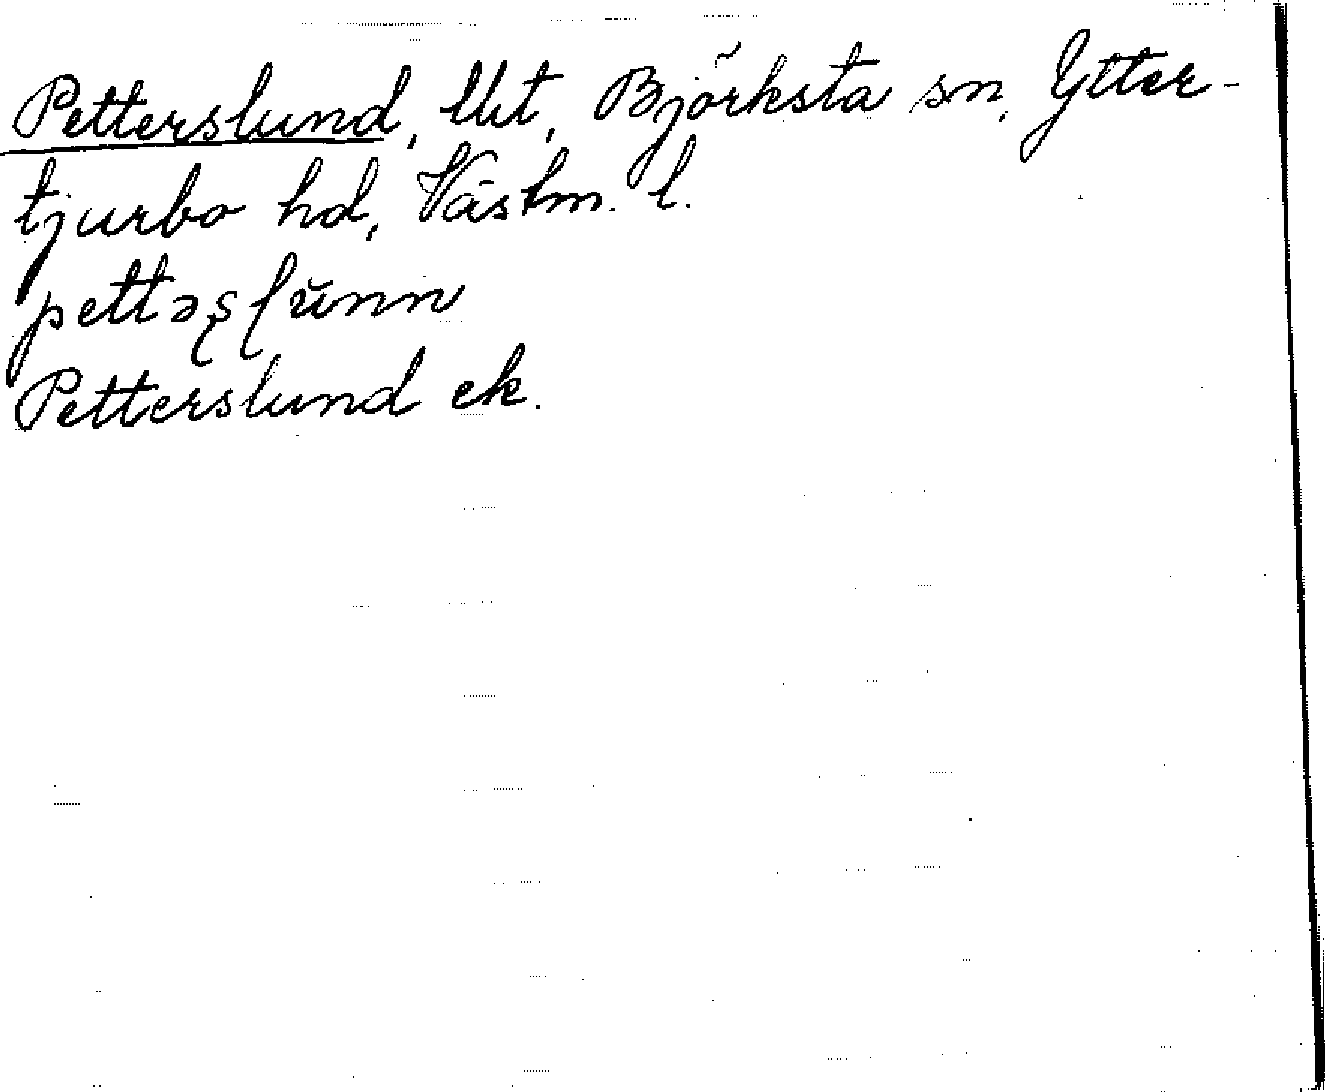 Petterslund, lht, Björksta sn, Ytter-
tjurbo hd, Västm. l.
pettəʂɭŭnn
Petterslund ek.